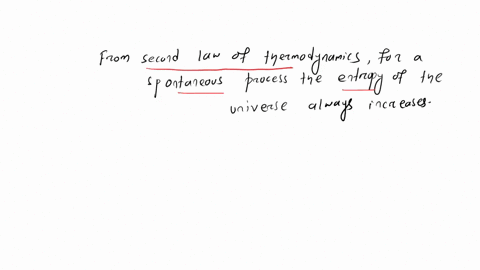 From second law of thermodynamics, for a
spontaneous process the entropy of the
universe always increases.